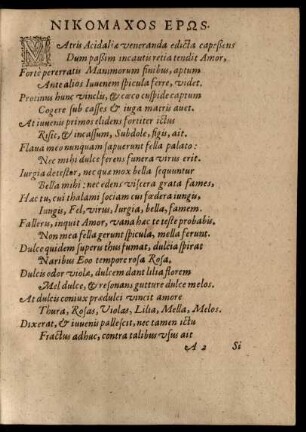 ΝΙΚΟΜΑΧΟΣ ΕΡΩΣ.
MAtris Acidaliæ veneranda edicta capessens
Dum passim incautis retia tendit Amor,
Forte pererratis Manimorum finibus, aptum
Ante alios Iuuenem spicula ferre, videt.
Protinus hunc vinclis, & cæco cuspide captum
Cogere sub casses & iuga matris auet.
At iuuenis primos elidens fortiter ictus
Risit, & incassum, Subdole, figis, ait.
Flaua meo nunquam sapuerunt fella palato:
Nec mihi dulce ferens funera virus erit.
Iurgia detestor, nec quæ mox bella sequuntur
Bella mihi: nec edens viscera grata fames,
Hac tu, cui thalami sociam cui fœdera iungis,
Iungis, Fel, virus, Iurgia, bella, famem.
Falleris, inquit Amor, vana hac te teste probabis,
Non mea fella gerunt spicula, mella ferunt.
Dulce quidem superis thus fumat, dulcia spirat
Naribus Eoo tempore rosa Rosa,
Dulcis odor violæ, dulcem dant lilia florem
Mel dulce, & resonans gutture dulce melos.
At dulcis coniux prædulci vincit amore
Thura, Rosas, Violas, Lilia, Mella, Melos.
Dixerat, & iuuenis pallescit, nec tamen ictu
Fractus adhuc, contra talibus vsus ait
A 2 Si